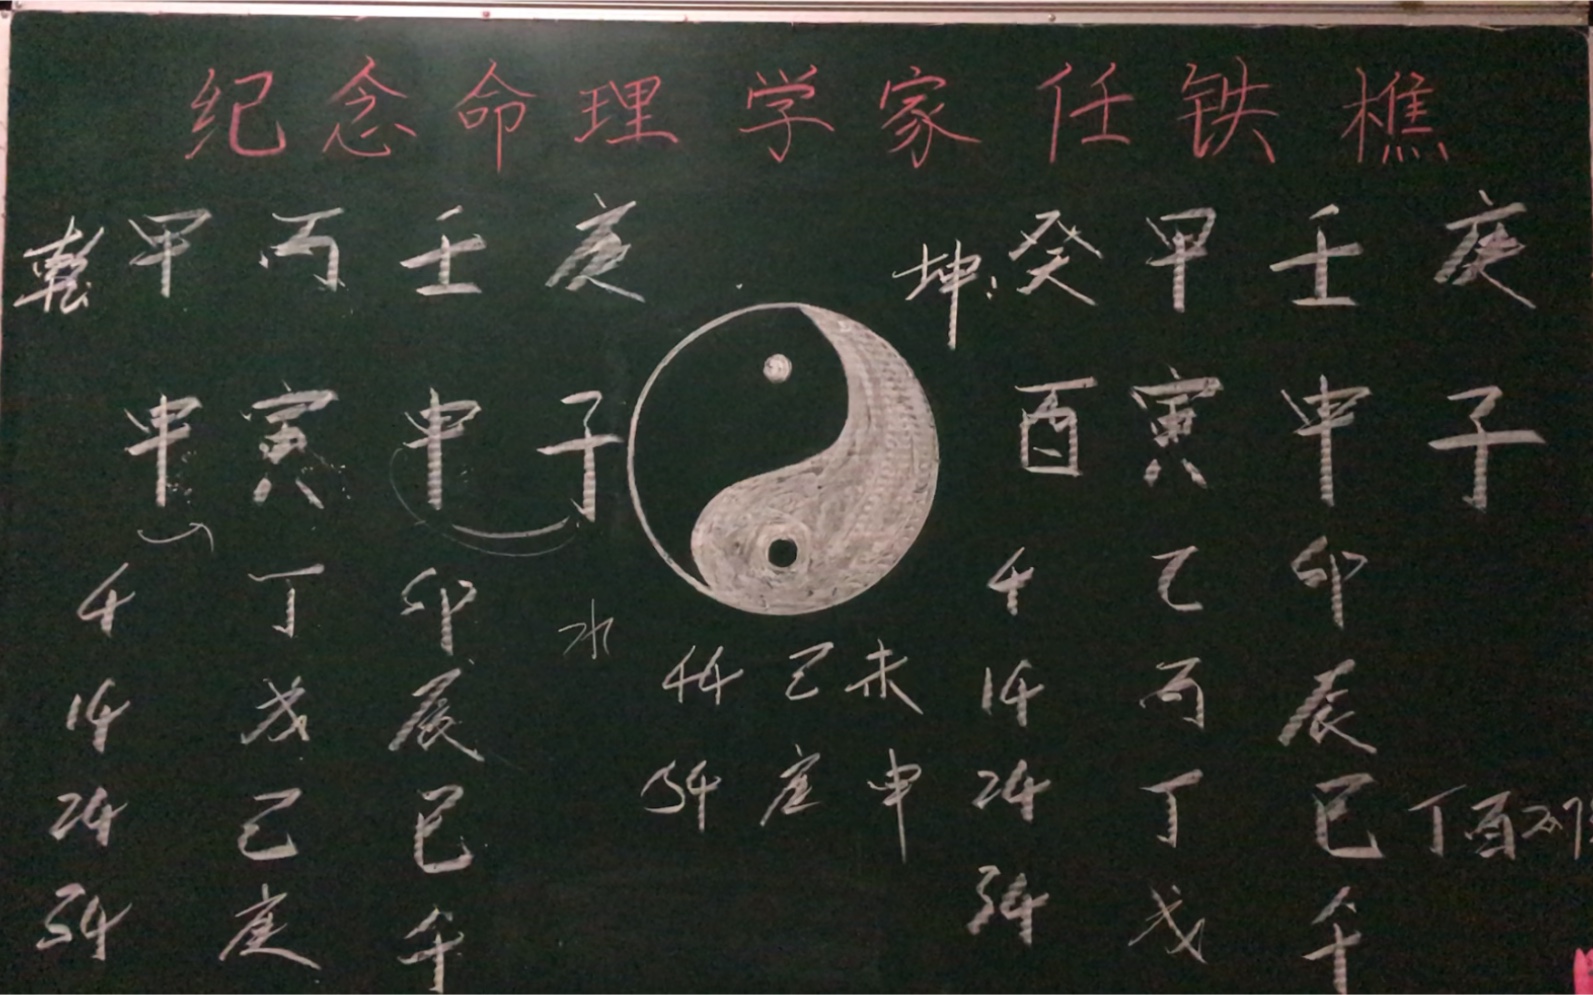 纪念命理学家任铁樵
乾 甲 丙 壬 庚
申 寅 申 子
4 丁 卯
14 戊 辰
24 己 巳
34 庚 午
水
44 己 未
54 庚 申
坤: 癸 甲 壬 庚
酉 寅 申 子
4 乙 卯
14 丙 辰
24 丁 巳 丁酉
34 戊 午